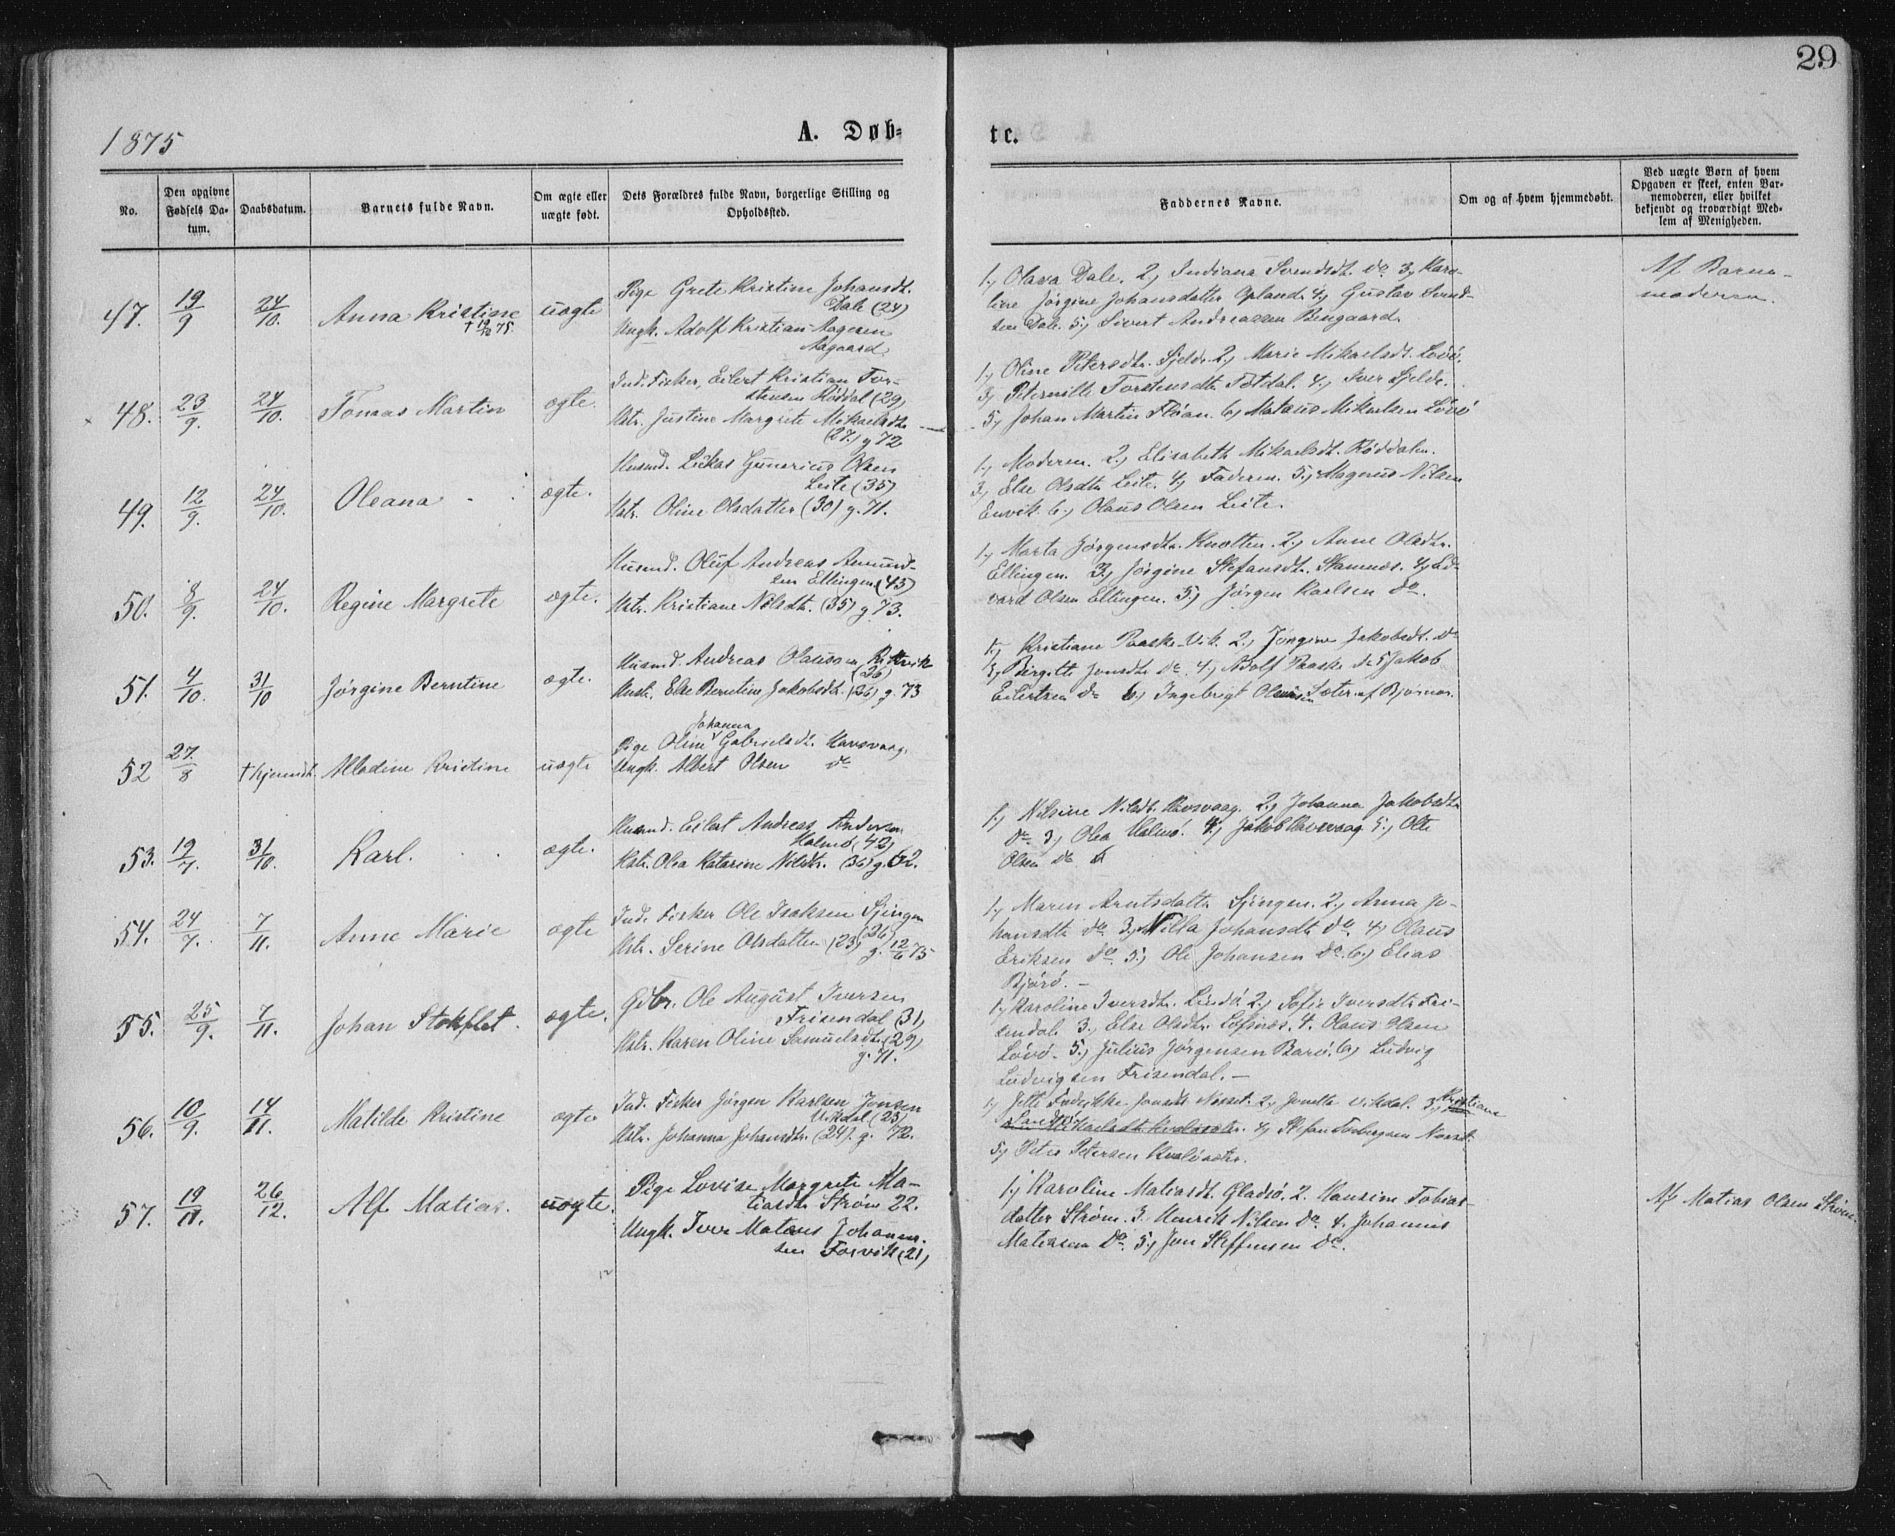 29
1875
A. Døb-
te.
No.
Den opgivne
Fødsels Da-
tum.
Daabsdatum.
Barnets fulde Navn.
Om ægte eller
uægte født.
Dets Forældres fulde Navn, borgerlige Stilling og
Opholdssted.
Faddernes Navne.
Om og af hvem hjemmedøbt.
Ved uægte Børn af hvem
Opgaven er skeet, enten Bar-
nemoderen, eller hvilket
bekjendt og troværdigt Med-
lem af Menigheden.
47. 19/9 24/10. Anna Kristine uægte
Pige Grete Kristine Johansdt.
Dale (24)
Ungk. Adolf Kristian Aagesen
Aagaard.
1, Olava Dale. 2, Indiana Svendsdt. do 3, Karo-
line Jørgine Johansdatter Opland. 4, Gustav Svend-
sen Dale. 5, Sivert Andreassen Bengaard.
Af Barne-
moderen.
48. 23/9. 24/10. Tomas Martin ægte.
Ind. Fisker, Eilert Kristian Tor-
stensen Röddal (29)
Hstr. Justine Margrete Mikaelsdtr
(27.) g 72
1, Oline Petersdtr. Sjelde. 2, Marie Mikaelsdt. Lövö.
3, Peternille Torstensdtr 4, Iver Sjelde.
5, Johan Martin Flöan. 6, Mataus Mikaelsen Lövö
49. 12/9. 24/10. Oleana ægte.
Husmd. Lukas Gunerius Olsen
Leite (35)
Hstr. Oline Olsdatter (30) g. 71.
1, Moderen. 2, Elisabeth Mikaelsdt. Röddalen.
3, Else Olsdtr Leite. 4, Faderen. 5, Magnus Nilsen
6, Olaus Olsen Leite.
50. 8/9. 24/10. Regine Margrete ægte.
Husmd. Oluf Andreas Amund-
sen Ellingen (45)
Hstr. Kristiane Nilsdt. (35) g 73.
1, Marta Jørgensdtr. 2, Anne Olsdtr.
Ellingen. 3, Jørgine Stefansdt. Stamnes. 4, Ed-
vard Olsen Ellingen. 5, Jørgen Karlsen do.
51. 4/10. 31/10 Jørgine Berntine ægte.
Husmd. Andreas Olausen
(26)
Hustr. Else Berntine Jakobsdt. (26) g. 73
1, Kristiane Paaske Vik 2, Jørgine Jakobsdt. do
3, Birgitte Jonsdtr do. 4, Adolf Paaske do 5, Jakob
Eilertsen do 6, Ingebrigt Olausen Sæter af Bjørnør.
52 27/8 † hjemdt. Alladine Kristine uægte
Johanna
Pige Oline Gabrielsdt. Havsvaag.
Ungk. Albert Olsen do
53. 19/7. 31/10. Karl. ægte.
Husmd. Eilert Andreas Andersen
Halmö (42)
Hstr. Olea Katarine Nilsdtr. (36) g. 62.
1, Nilsine Nilsdt. Havsvaag. 2, Johanna Jakobsdtr
do 3, Olea Halmö. 4, Jakob Havsvaag 5, Olte
Olsen do 6
54. 24/7. 7/11. Anne Marie ægte
Ind. Fisker Ole Isaksen Sjingen
(26)
Hstr. Serine Olsdatter (23) g. 12/6 75
1, Maren Arntsdattr Sjingen. 2, Anna Jo-
hansdtr do 3, Milla Johansdtr do. 4, Olaus
Eriksen do. 5, Ole Johansen do. 6, Elias
Bjørö. –
55. 25/9. 7/11. Johan Stokflet. ægte.
Gdbr. Ole August Iversen
Frisendal (31)
Hstr. Karen Oline Samuelsdtr (29)
g. 71.
1, Karoline Iversdtr. Lindö 2, Sofie Iversdtr Fri-
sendal 3, Else Olsdtr. 4. Olaus Olsen
Lövö. 5, Julius Jørgensen Barö. 6, Ludvig
Ludvigsen Frisendal. –
56. 10/9. 14/11. Matilde Kristine ægte
Ind. Fisker Jørgen Karlsen Jonsen
Vikdal (23)
Hstr. Johanna Johansdtr. (24). g. 72.
1, Jette Fredrikke 2, Jonetta Vikdal. 3, Kristiane
4, Stefan
5, Peter Petersen
57. 19/11. 26/12. Alf Matias. uægte.
Pige Lovise Margrete Ma-
tiasdtr Strøm 22.
Ungk. Iver Mataus Johannes-
sen Forvik (21)
1, Karoline Matiasdt. Gladsö. 2. Hansine Tobias-
datter Strøm. 3. Henrik Nilsen do 4. Johannes
Matiasen do. 5, Jon Steffensen do.
Af Matias Olsen Strøm.